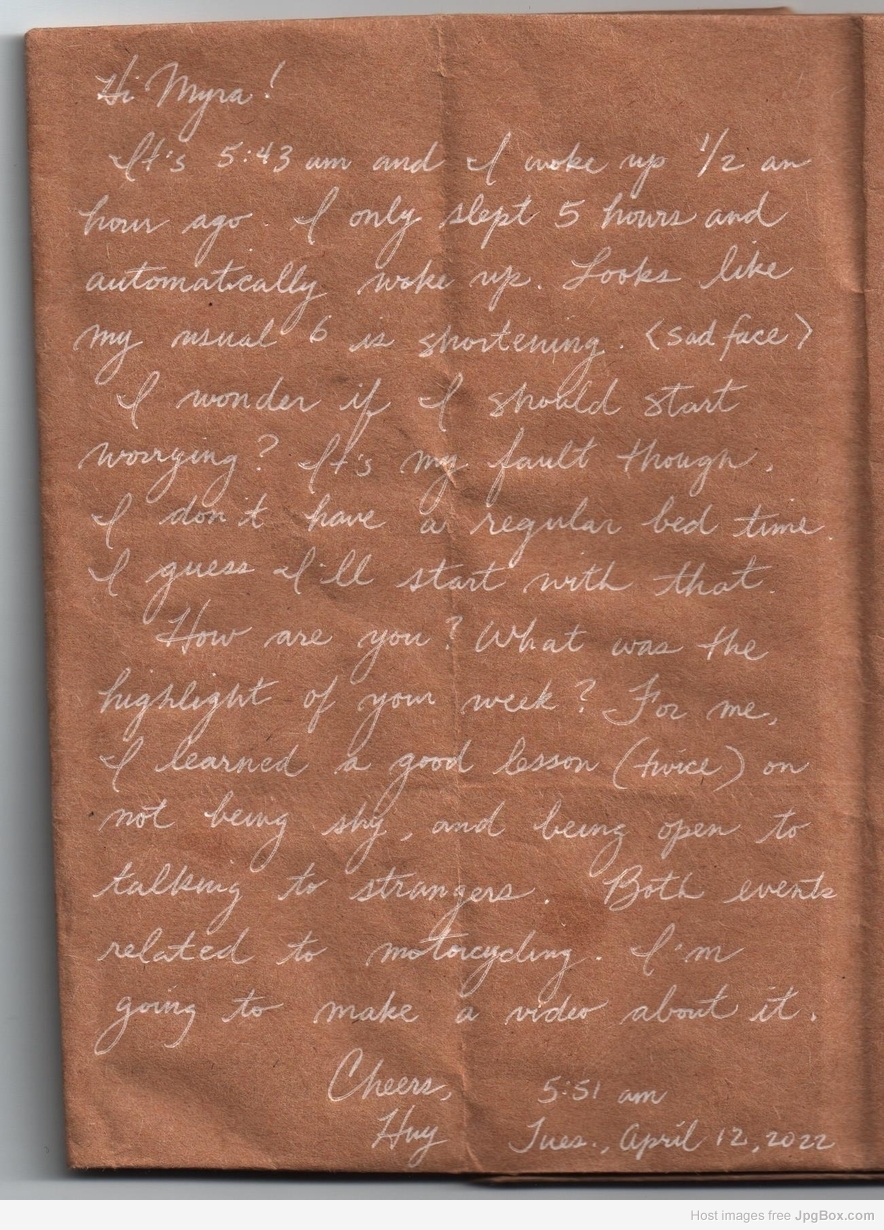 Hi Myra!
It's 5:43 am and I woke up 1/2 an
hour ago. I only slept 5 hours and
automatically woke up. Looks like
my usual 6 is shortening. <sad face>
I wonder if I should start
worrying? It's my fault though.
I don't have a regular bed time.
I guess I'll start with that.
How are you? What was the
highlight of your week? For me,
I learned a good lesson (twice) on
not being shy, and being open to
talking to strangers. Both events
related to motorcycling. I'm
going to make a video about it.
Cheers, 5:51 am
Huy Tues., April 12, 2022
Host images free JpgBox.com